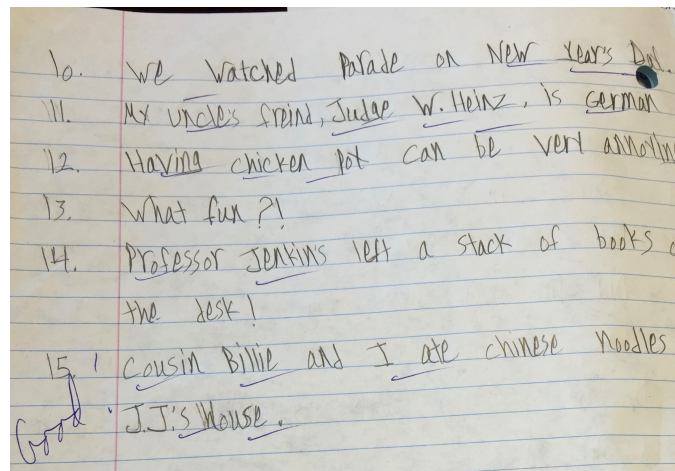 10. We watched Parade on New Year's
11. My uncle's freind, Judge W. Heinz, is German
12. Having chicken pox can be very annoyin
13. What fun?!
14. Professor Jenkins left a stack of books
the desk!
15. Cousin Billie and I ate chinese noodles
Good J.J.'s House.